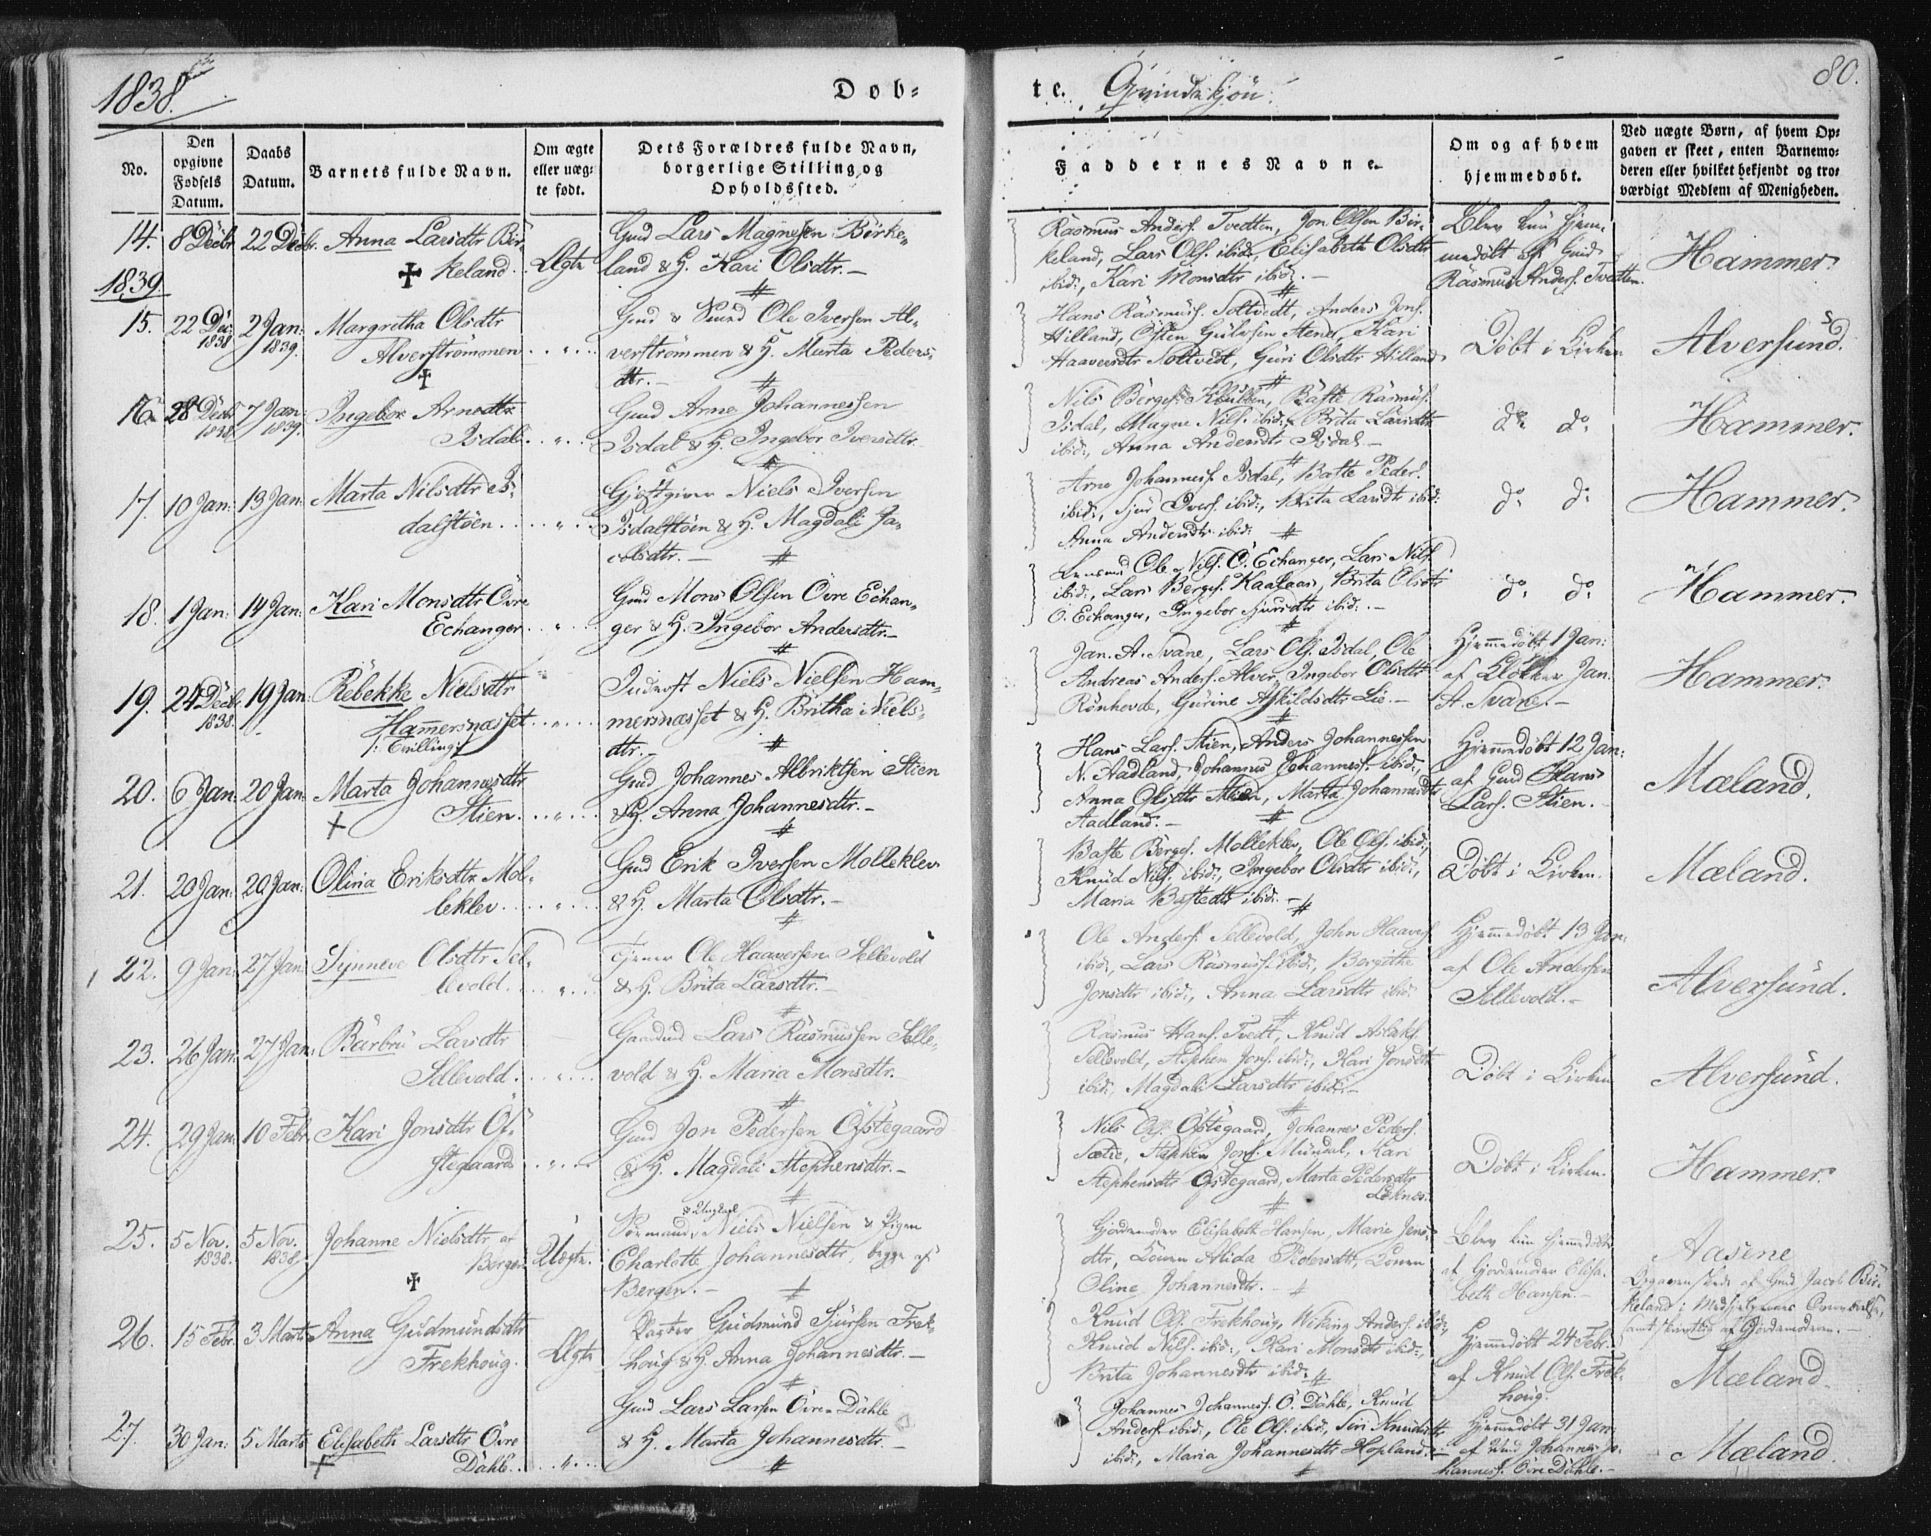 1838.
Døb-
te. Qvindekjön.
80.
No.
Den opgivne Fødsels Datum.
Daabs Datum.
Barnets fulde Navn.
Om ægte eller uægte født.
Dets Forældres fulde Navn, borgerlige Stilling og Opholdssted.
Faddernes Navne.
Om og af hvem hjemmedøbt.
Ved uægte Børn, af hvem Opgaven er skeet, enten Barnemoderen eller hvilket bekjendt og troværdigt Medlem af Menigheden.
14. 8 Decbr 22 Decbr. Anna Larsdtr Bir-
keland. Ægte
Gmd Lars Magnesen Birke-
land & H. Kari Olsdtr. –
Rasmus Anders. Tvedten, Jon Olsen Bir-
keland, Lars Ols. ibid:, Elisabeth Olsdtr
ibid:, Kari Monsdtr ibid. –
Blev kun hjem-
medöbt af Gmd
Rasmus Anders. Tvedten.
Hammer.
1839.
15. 22 Dec: 1838 2 Jan: 1839. Margretha Olsdtr
Alverströmmen . . " . .
Gmd & Ole Iversen Al-
verströmmen & H. Marta Peders-
dtr. –
Hans Rasmuss. Soltvedt, Anders Jons.
Hilland, Östen Gulvsen, Kari
Haaversdtr Soltvedt, Guri Olsdtr Hilland
Döbt i Kirken
Alversund.
16. 28 Decbr 1838 7 Jan: 1839. Ingebor Arnsdtr
Isdal . . " . .
Gmd Arne Johannessen
Isdal & H. Ingebor Iversdtr.
Nils Berges., Baste Rasmus.
Isdal, Magne Nils. ibid:, Brita Larsdtr
ibid:, Anna Andersdtr Isdal –
do do
Hammer.
17. 10 Jan: 13 Jan: Marta Nilsdtr Is-
dalstöen . . " . .
Gjestgiver Niels Iversen
Isdalstöen & H. Magdali Ja-
cobsdtr. –
Arne Johanness. Isdal, Baste Peders.
ibid:, Sjur Ivers. ibid:, Brita Larsdtr ibid:
Anna Andersdtr ibid:
do do
Hammer.
18. 1 Jan: 14 Jan: Kari Monsdtr Övre
Echanger . . " . .
Gmd Mons Olsen Övre Echan-
ger & H. Ingebor Andersdtr. –
Lensmd Ole Nils. Ö. Echanger, Lars Nils.
ibid:, Lars Berges. Kaalaas, Brita Olsdtr
Ö. Echanger, Ingebor Sjursdtr ibid. –
do do
Hammer.
19. 24 Decbr 1838. 19 Jan: Rebekke Nielsdtr
Hammersnæsset . . " . .
/: Tvilling :/
Inderst Niels Nielsen Ham-
mersnæsset & H. Britha Niels-
dtr. –
Jan. A. Svane, Lars Ols. Isdal, Ole
Andreas Anders. Alver, Ingebor Olsdtr
Rönhovde, Gurine Askildsdtr Lie. –
Hjemmedöbt 1 Jan:
af Klokker Jan.
A. Svane. –
Hammer.
20. 6 Jan: 20 Jan: Marta Johannesdtr
Stien . . " . .
Gmd Johannes Albriktsen Stien
& H. Anna Johannesdtr. –
Hans Lars. Stien, Anders Johannessen
N. Aadland, Johannes Johanness. ibid:,
Anna Olsdtr Stien, Marta Johannesdtr
Aadland. –
Hjemmedöbt 12 Jan:
af Gmd Hans
Lars. Stien. –
Mæland.
21. 20 Jan: 20 Jan: Olina Eriksdtr Mol-
leklev . . " . .
Gmd Erik Iversen Molleklev
& H. Marta Olsdtr. –
Baste Berges. Molleklev, Ole Ols. ibid:,
Knud Nils. ibid:, Ingebor Olsdtr ibid:,
Maria Bastedtr ibid. –
Döbt i Kirken.
Mæland.
22. 9 Jan: 27 Jan: Synneve Olsdtr Sel-
levold. . . " . .
Tjener Ole Haaversen Sellevold
& H. Brita Larsdtr. –
Ole Anders. Sellevold, John Haavers.
ibid:, Lars Rasmuss. ibid:, Bergithe
Jonsdtr ibid:, Anna Larsdtr ibid.
Hjemmedöbt 13 Jan:
af Ole Andersen
Sellevold. –
Alversund.
23. 26 Jan: 27 Jan: Barbru Larsdtr
Sellevold. . . " . .
Gaardmd Lars Rasmussen Selle-
vold & H. Maria Monsdtr. –
Rasmus Hans. Tvedt, Knud Aslaks.
Sellevold, Stephen Jons. ibid:, Kari Jonsdtr
ibid:, Magdali Larsdtr ibid: –
Döbt i Kirken
Alversund.
24. 29 Jan: 10 Febr. Kari Jonsdtr Öf-
stegaard . . " . .
Gmd Jon Pedersen Öfstegaard
& H. Magdali Stephensdtr. –
Nils Ols. Öfstegaard, Johannes Peders.
Sætre, Stephen Jons. Mundal, Kari
Stephensdtr Öfstegaard, Marta Pedersdtr
Leknes.
Döbt i Kirken.
Hammer.
25. 5 Nov. 1838. 5 Nov. 1838. Johanne Nielsdtr af
Bergen Uægte.
Sörmand & Ungkarl Niels Nielsen & Pigen
Charlotte Johannesdtr, begge af
Bergen. –
Gjordemoder Elisabeth Hansen, Marie Jens-
dtr, Konen Alida Pedersdtr, Konen
Oline Johannesdtr. –
Blev kun hjemmedöbt
af Gjordemoder Elisa-
beth Hansen. –
Aasene
Opgaven skede af Gmd Jacob Bir-
keland i Medhjelpernes Overværelse,
samt skriftlig af Gjordemoderen. –
26. 15 Febr. 3 Marts Anna Gudmundsdtr
Frekhoug. Ægte
Gudmund Sjursen Frek-
houg & H. Anna Johannesdtr. –
Knud Ols. Frekhoug, Wiking Anders. ibid:,
Knud Nils. ibid:, Kari Monsdtr ibid:,
Brita Johannesdtr ibid:
Hjemmedöbt 24 Febr.
af Knud Ols. Frek-
houg.
Mæland.
27. 30 Jan: 5 Marts Elisabeth Larsdtr Övre
Dahle. . . " . .
Gmd Lars Larsen Övre Dahle
& H. Marta Johannesdtr. –
Johannes Johanness. Ö. Dahle, Knud
Anders. ibid:, Ole Ols. ibid:, Siri Knudsdtr
ibid:, Maria Johannesdtr Hopland. –
Hjemmedöbt 31 Jan:
af Johannes Jo-
hanness. Övre Dahle. –
Mæland.